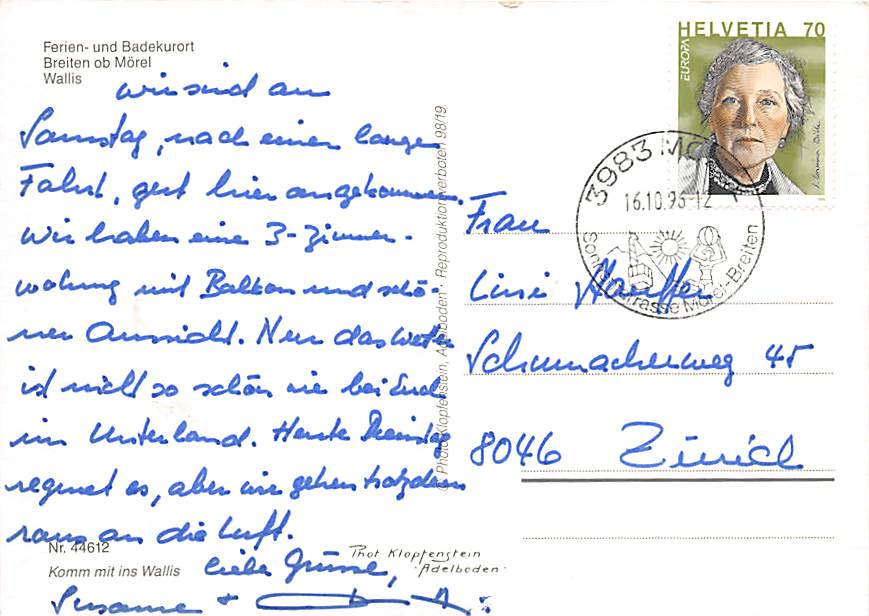 Ferien- und Badekurort
Breiten ob Mörel
Wallis
wir sind am
Samstag, nach einer langen
Fahrt, gut hier angekommen.
Wir haben eine 3-Zimmer-
wohnung mit Balkon und schö-
ner Aussicht. Nur das Wetter
ist nicht so schön wie bei Euch
im Unterland. Heute Dienstag
regnet es, aber wir gehen trotzdem
raus an die Luft.
Liebe Grüsse,
Susanne +
Nr. 44612
Komm mit ins Wallis
Phot Klopfenstein
Adelboden
© Photo Klopfenstein, Adelboden · Reproduktion verboten 98/19
HELVETIA 70
EUROPA
3983
16.10.96-12
Sonnenterrasse Mörel-Breiten
Frau
Lini Stauffer
Schumacherweg 45
8046 Zürich